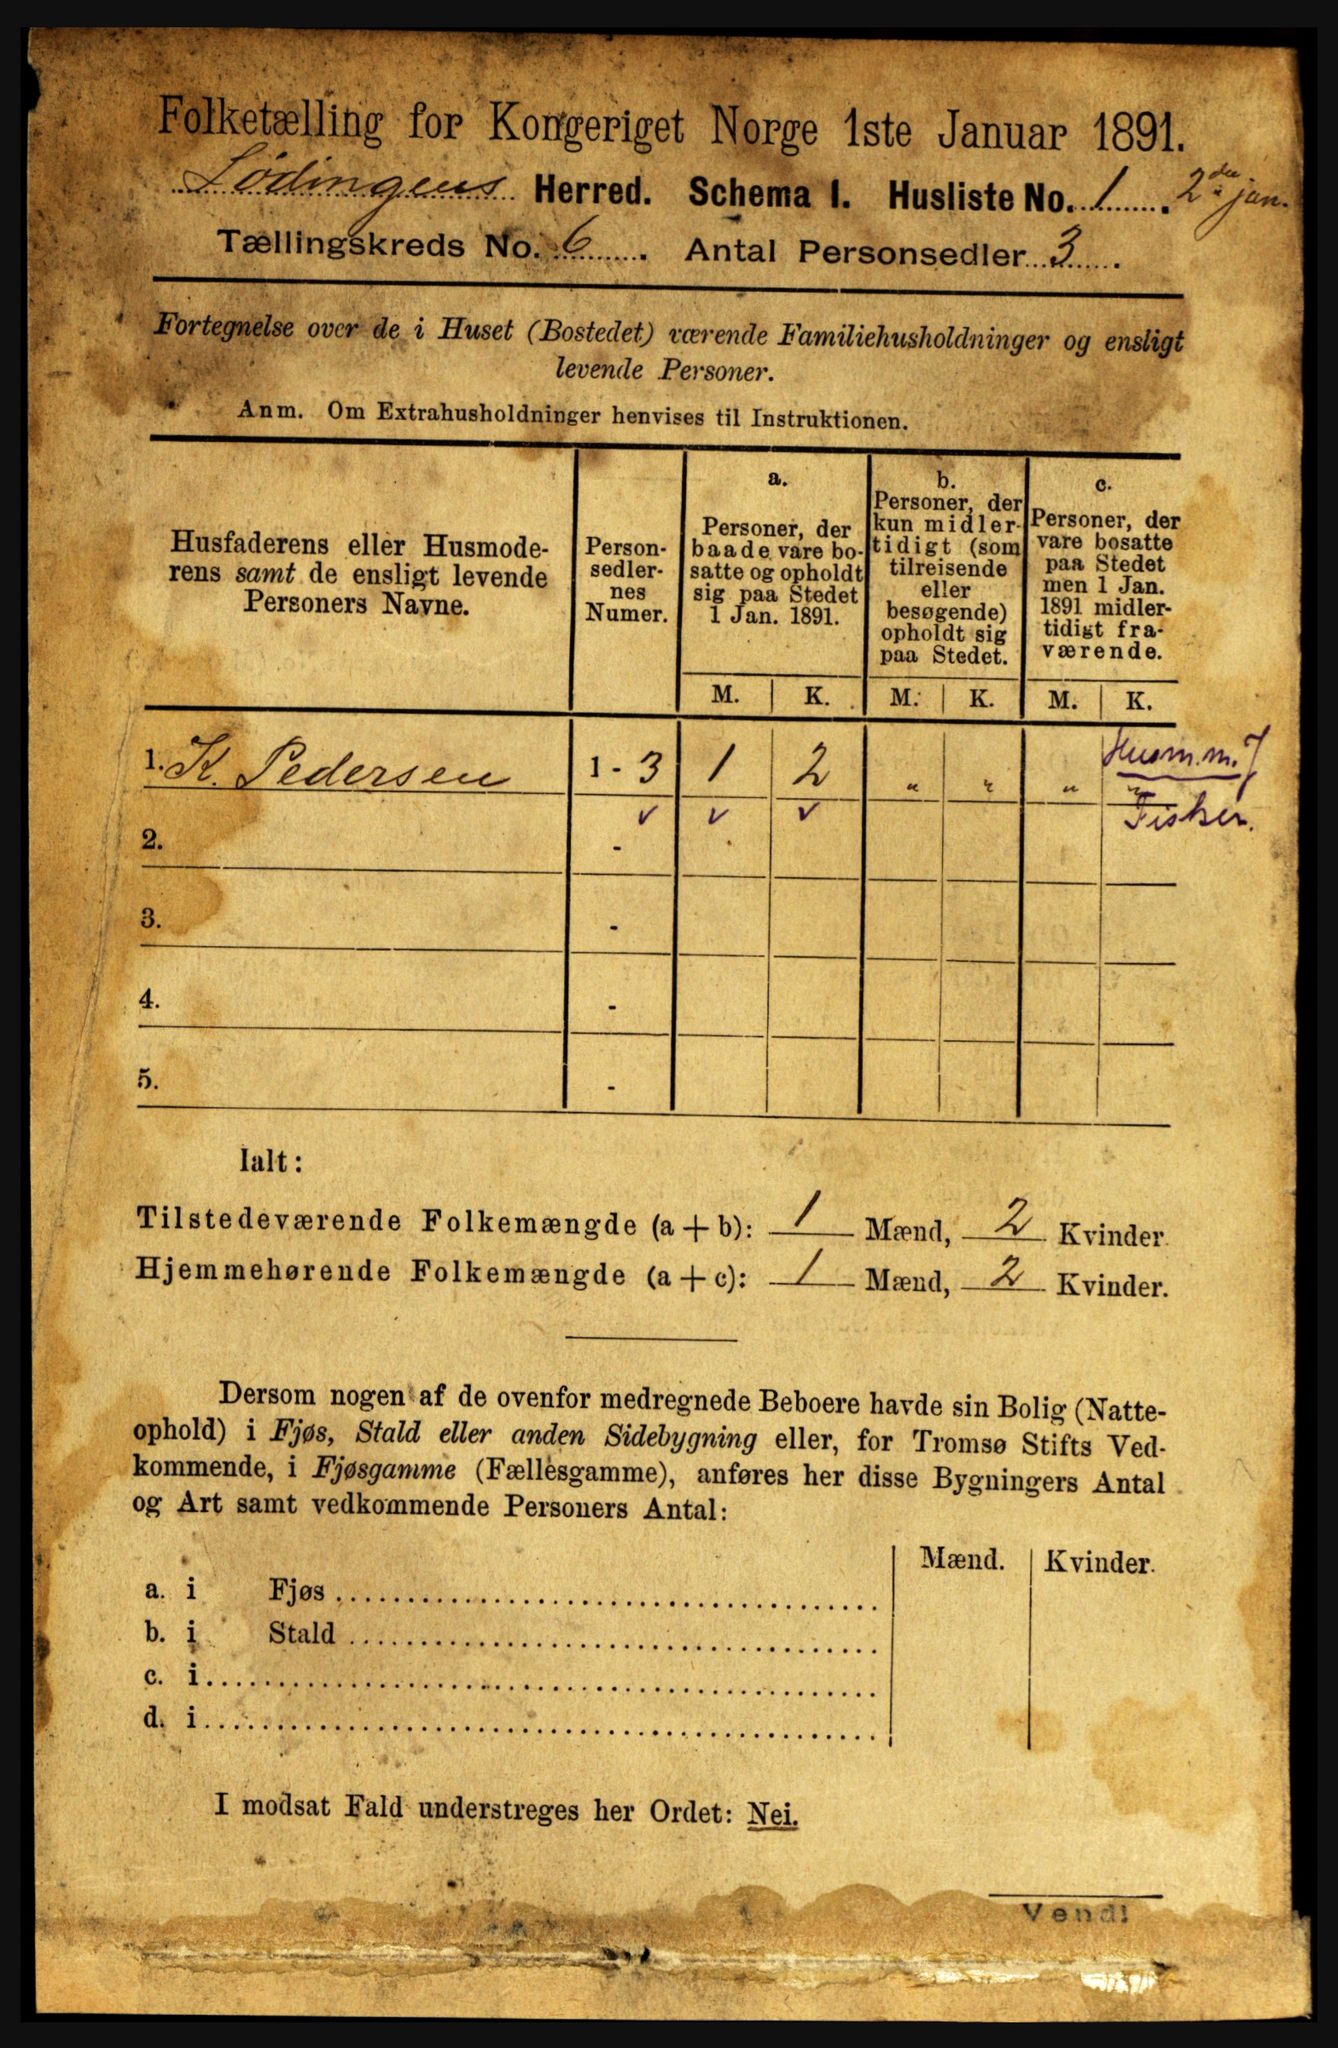 Folketælling for Kongeriget Norge 1ste Januar 1891.
Lødingens Herred. Schema 1. Husliste No. 1. 2den jan.
Tællingskreds No. 6. Antal Personsedler 3.
Fortegnelse over de i Huset (Bostedet) værende Familiehusholdninger og ensligt
levende Personer.
Anm. Om Extrahusholdninger henvises til Instruktionen.
Husfaderens eller Husmode-
rens samt de ensligt levende
Personers Navne.
Person-
sedler-
nes
Numer.
a.
Personer, der
baade vare bo-
satte og opholdt
sig paa Stedet
1 Jan. 1891.
b.
Personer, der
kun midler-
tidigt (som
tilreisende
eller
besøgende)
opholdt sig
paa Stedet.
c.
Personer, der
vare bosatte
paa Stedet
men 1 Jan.
1891 midler-
tidigt fra-
værende.
M. K. M. K. M. K.
1. K. Pedersen 1 - 3 1 2 " " " "
Husm. m. J
Fisker.
✓ ✓ ✓
2. -
3. -
4. -
5. -
Ialt:
Tilstedeværende Folkemængde (a + b): 1 Mænd, 2 Kvinder.
Hjemmehørende Folkemængde (a + c): 1 Mænd, 2 Kvinder.
Dersom nogen af de ovenfor medregnede Beboere havde sin Bolig (Natte-
ophold) i Fjøs, Stald eller anden Sidebygning eller, for Tromsø Stifts Ved-
kommende, i Fjøsgamme (Fællesgamme), anføres her disse Bygningers Antal
og Art samt vedkommende Personers Antal:
Mænd. Kvinder.
a. i Fjøs
b. i Stald
c. i
d. i
I modsat Fald understreges her Ordet: Nei.
Vend!